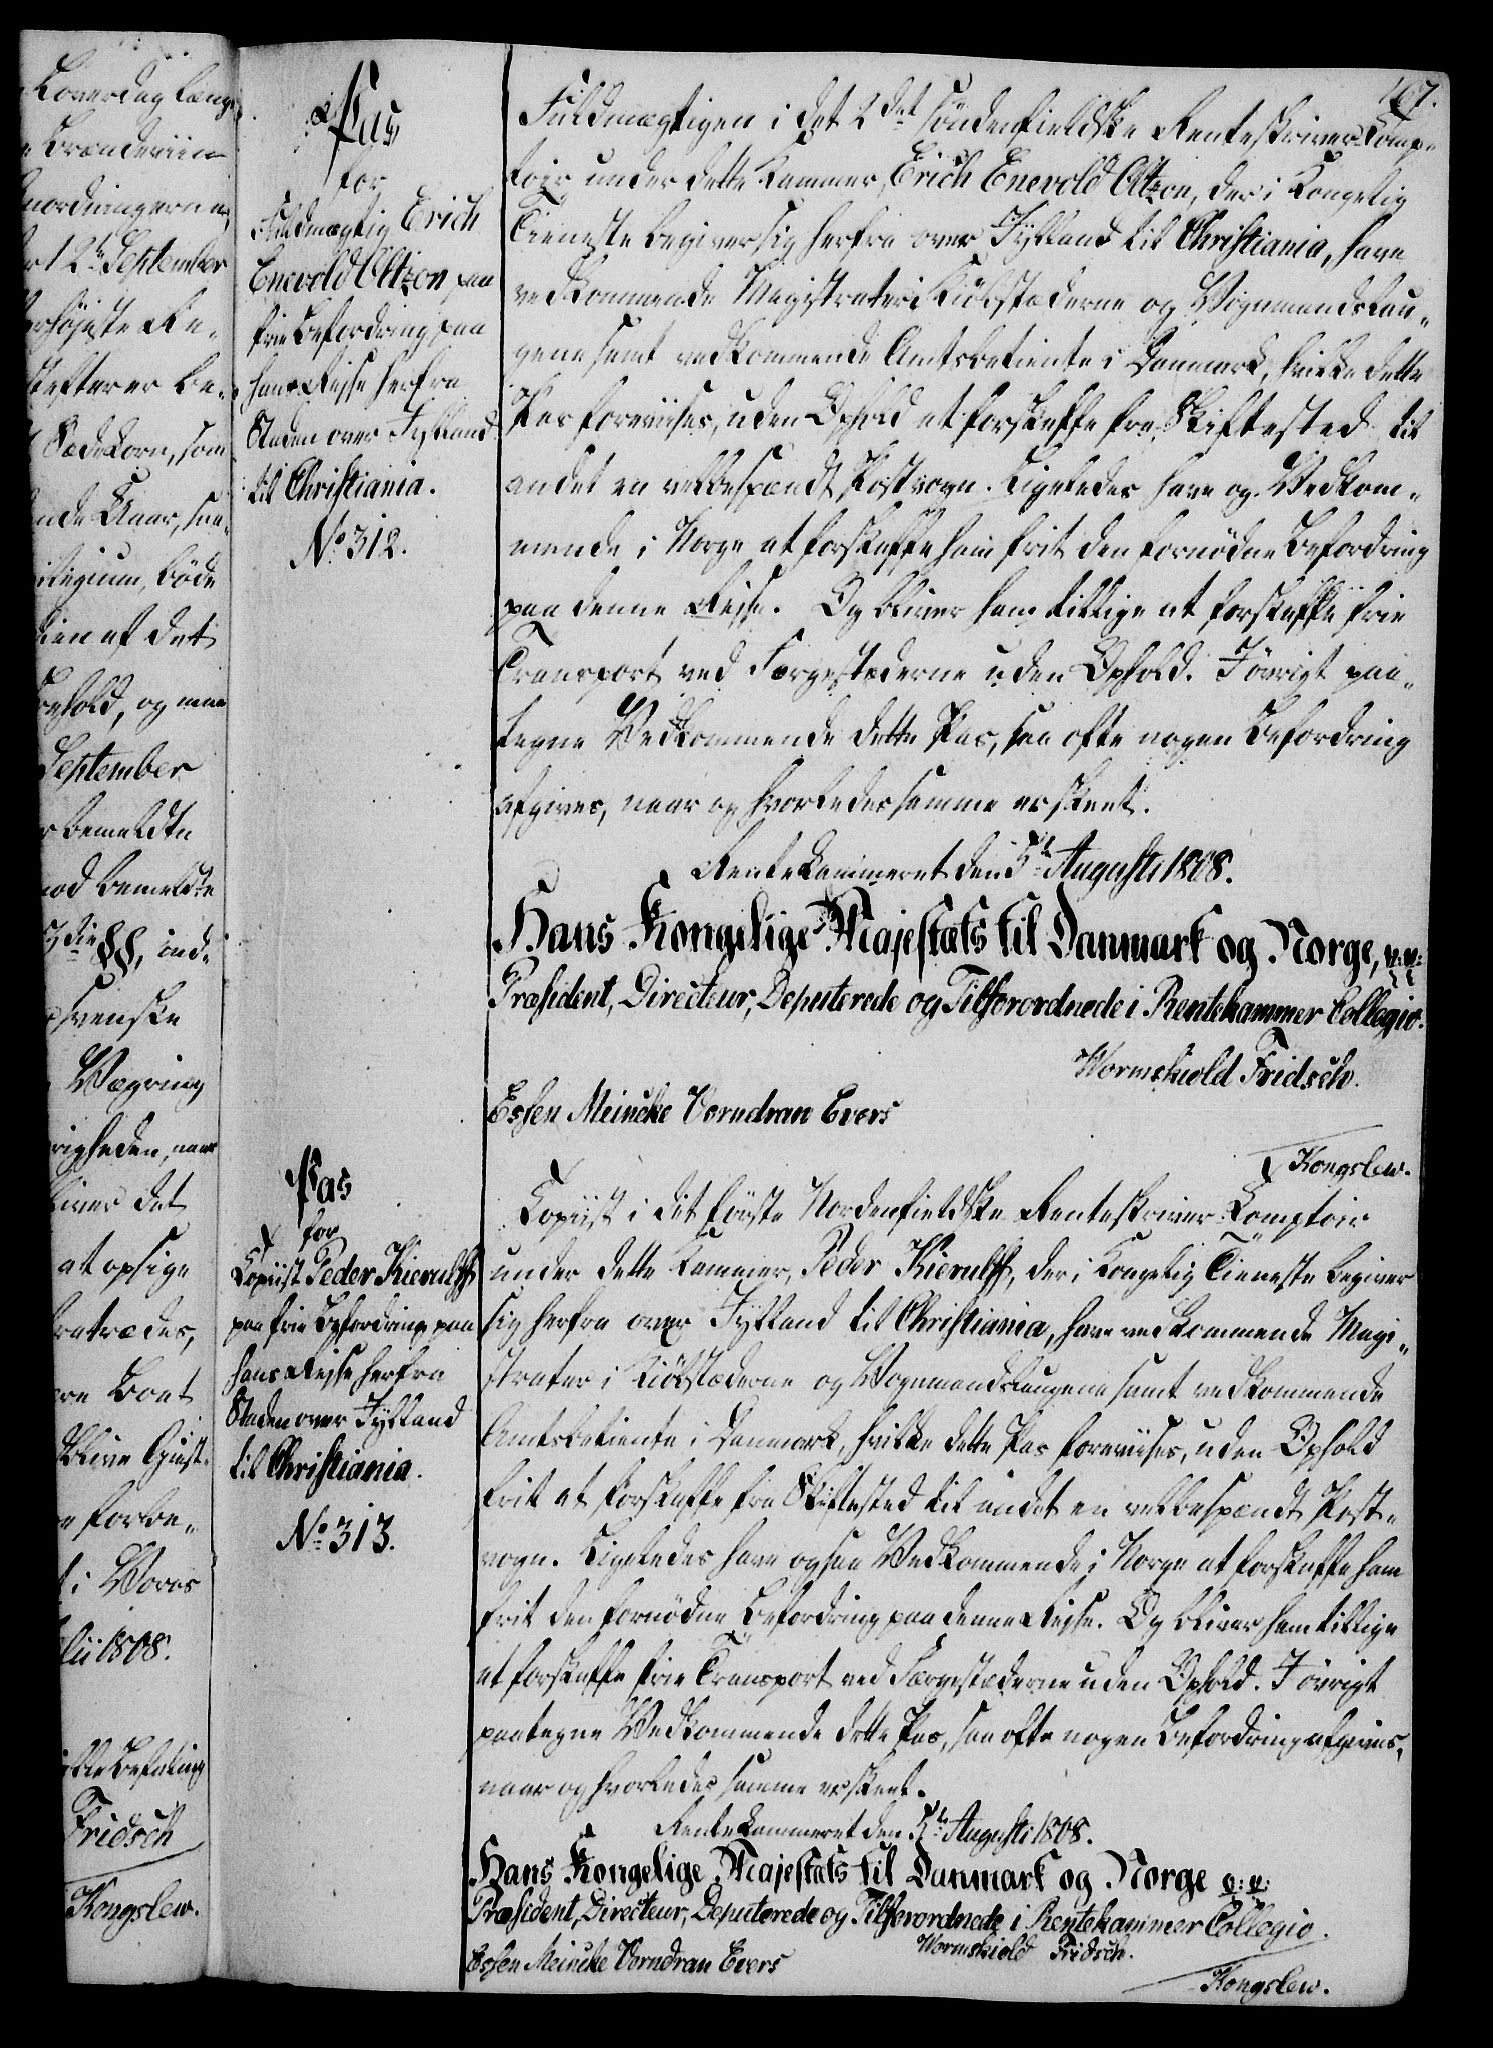 167.
Pas
for
Fuldmægtig Erich
Enevold Altzon paa
frie Befordring paa
hans Rejse herfra
Staden over Jylland
til Christiania.
No. 312.
Fuldmægtigen i det 2det Søndenfieldske Renteskriver-Comp-
toir under dette Kammer, Erich Enevold Altzon, der i Kongelig
Tieneste begiver sig herfra over Jylland til Christiania, have
vedkommende Magistrater i Kiöbstæderne og Vognmandslau-
gene samt vedkommende Amtsbetiente i Danmark, hvilke dette
Pas foreviises, uden Ophold at forskaffe fra Skiftested til
andet en velbespændt Postvogn. Ligeledes have og Vedkom-
mende i Norge at forskaffe ham frit den fornødne Befordring
paa denne Rejse. Og bliver ham tillige at forskaffe frie
Transport ved Færgestæderne uden Ophold. I øvrigt paa-
tegne Vedkommende dette Pas, saa ofte nogen Befordring
afgives, naar og hvorledes samme er skeet.
Rentekammeret den 5te Augusti 1808.
Hans Kongelige Majestæts til Danmark og Norge, p: p:
Præsident, Directeur, Deputerede og Tilforordnede i Rentekammer Collegio.
Wormskiold Fridsch.
Essen Meincke Vorndran Evers
Kongslew.
Pas
for
Copiist Peder Kierulff
paa frie Befordring paa
hans Rejse herfra
Staden over Jylland
til Christiania.
No. 313.
Copiist i det første Nordenfieldske Renteskriver-Comptoir
under dette Kammer, Peder Kierulff, der i Kongelig Tieneste begiver
sig herfra over Jylland til Christiania, have vedkommende Magi-
strater i Kiöbstæderne og Vognmandslaugene samt vedkommende
Amtsbetiente i Danmark, hvilke dette Pas foreviises, uden Ophold
frit at forskaffe fra Skiftested til andet en velbespændt Post-
vogn. Ligeledes have ogsaa Vedkommende i Norge at forskaffe ham
frit den fornødne Befordring paa denne Rejse. Og bliver ham tillige
at forskaffe frie Transport ved Færgestæderne uden Ophold. I øvrigt
paategne Vedkommende dette Pas, saa ofte nogen Befordring afgives,
naar og hvorledes samme er skeet.
Rentekammeret den 5te Augusti 1808.
Hans Kongelige Majestæts til Danmark og Norge p: p:
Præsident, Directeur, Deputerede og Tilforordnede i Rentekammer Collegio.
Wormskiold Fridsch.
Essen Meincke Vorndran Evers
Kongslew.